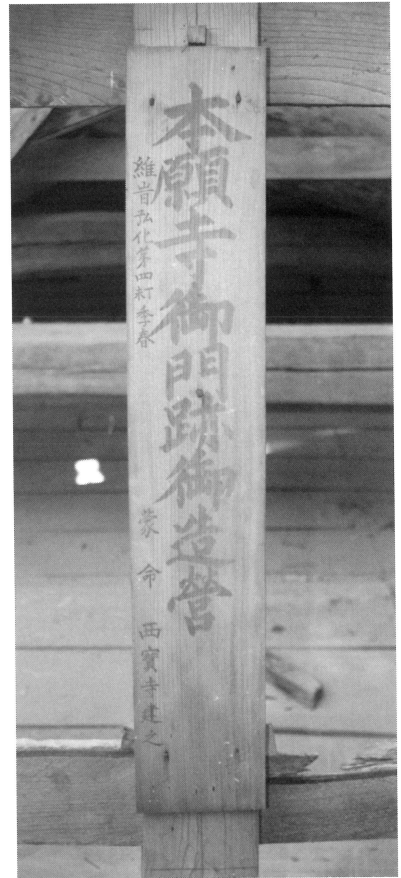 本願寺御門跡御造営
維旹弘化第四盯季春
蒙命 西寳寺建之